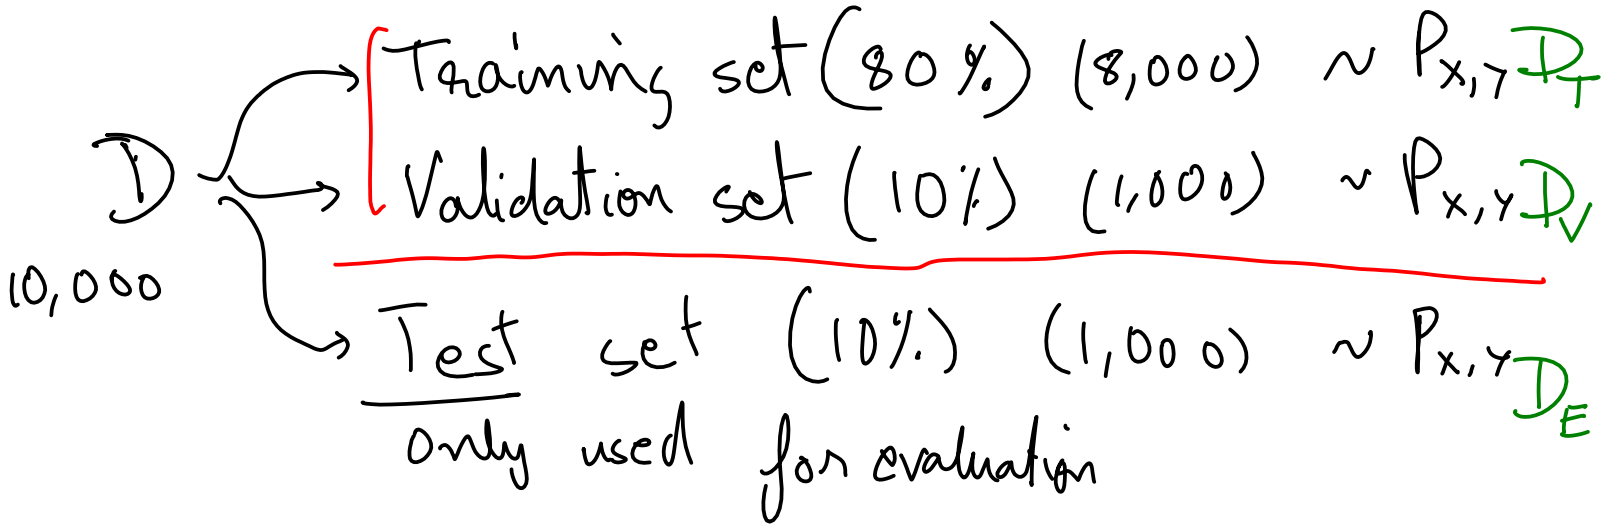 Training set (80%) (8,000) ~ P_{X,Y} D_T
D
Validation set (10%) (1,000) ~ P_{X,Y} D_V
10,000
Test set (10%) (1,000) ~ P_{X,Y} D_E
only used for evaluation